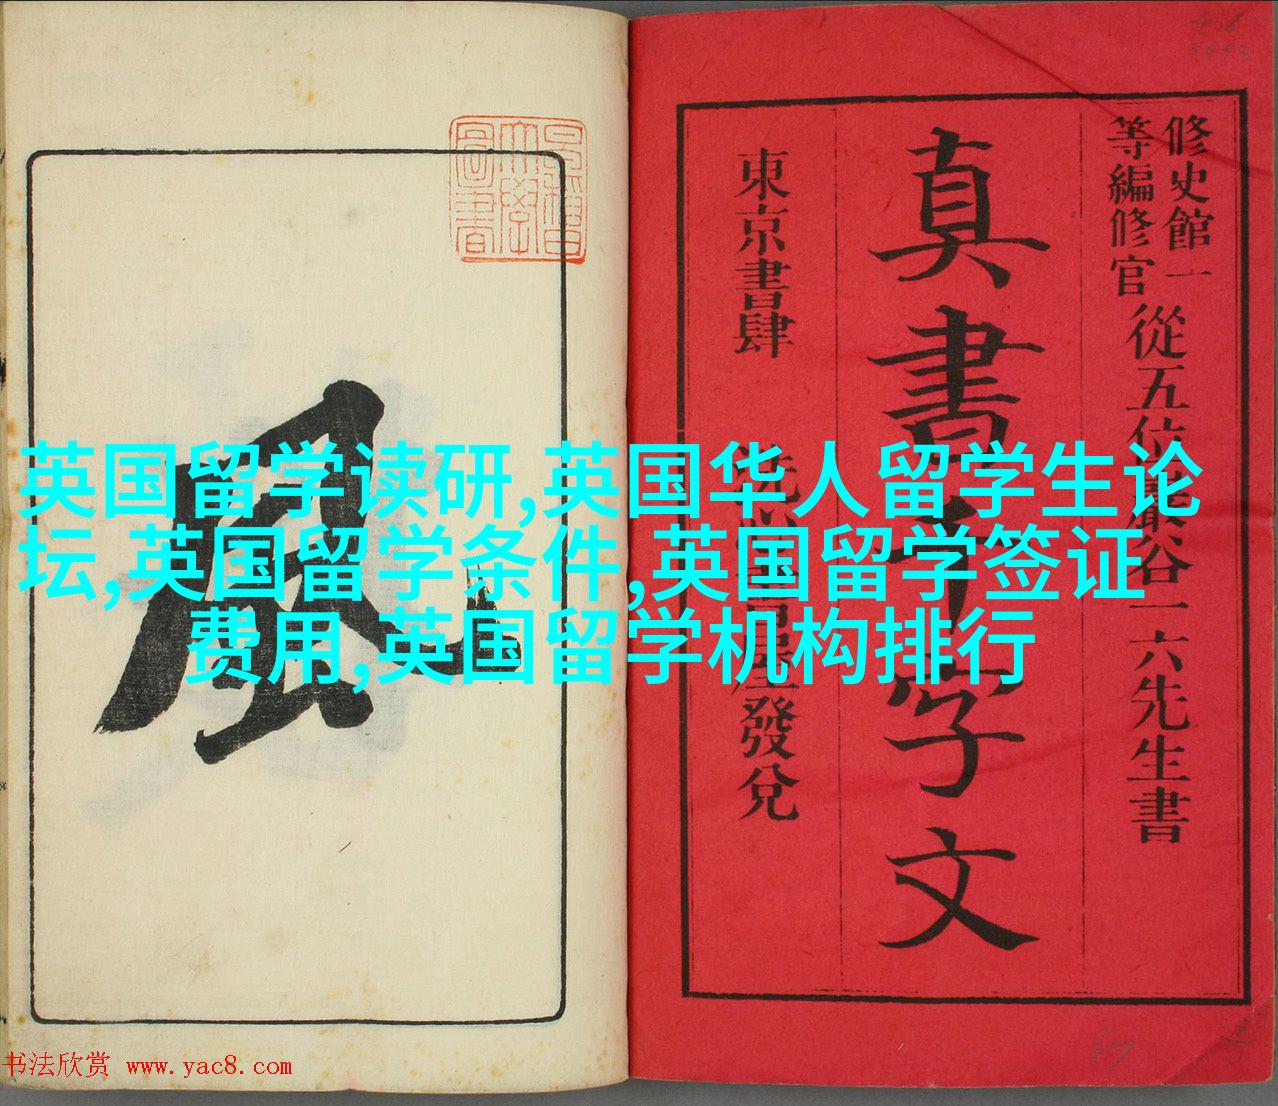 修史館一
等編修官
從五位巖谷一六先生書
真書千字文
東京書肆
發兌
風
英国留学读研,英国华人留学生论
坛,英国留学条件,英国留学签证
费用,英国留学机构排行
书法欣赏 www.yac8.com